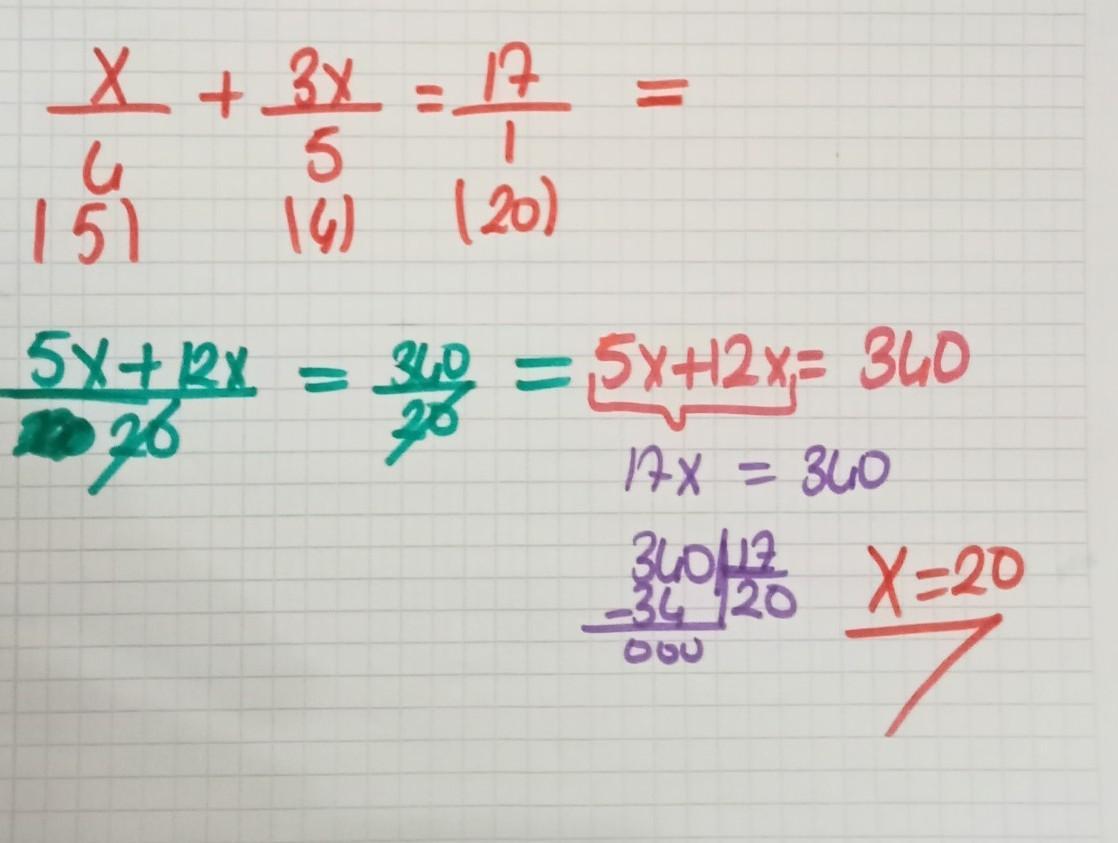 x/4 + 3x/5 = 17/1 =
(5) (4) (20)
5x+12x/20 = 340/20 = 5x+12x = 340
17x = 340
340 17
-34 20
000
x=20